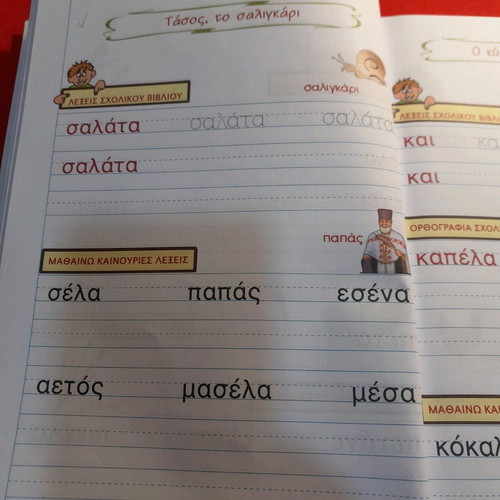 Τάσος, το σαλιγκάρι
ΛΕΞΕΙΣ ΣΧΟΛΙΚΟΥ ΒΙΒΛΙΟΥ
σαλιγκάρι
σαλάτα σαλάτα σαλάτα
σαλάτα
παπάς
ΜΑΘΑΙΝΩ ΚΑΙΝΟΥΡΙΕΣ ΛΕΞΕΙΣ
σέλα παπάς εσένα
αετός μασέλα μέσα
Ο
ΛΕΞΕΙΣ ΣΧΟΛΙΚΟΥ
και
και
ΟΡΘΟΓΡΑΦΙΑ
καπέλα
ΜΑΘΑΙΝΩ